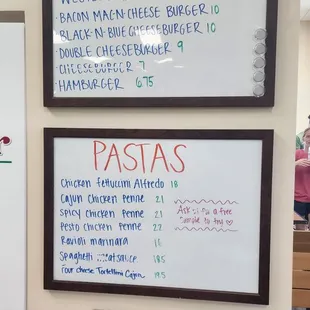 BACON MAC-N-CHEESE BURGER 10
BLACK-N-BLUE CHEESEBURGER 10
DOUBLE CHEESEBURGER 9
CHEESEBURGER 7
HAMBURGER 6.75
PASTAS
Chicken Fettuccini Alfredo 18
Cajun Chicken Penne 21
Spicy Chicken Penne 21
Pesto Chicken Penne 22
Ravioli marinara
Spaghetti meatsauce 18.5
Four cheese Tortellini Cajun 19.5
Ask for a free
Sample to try